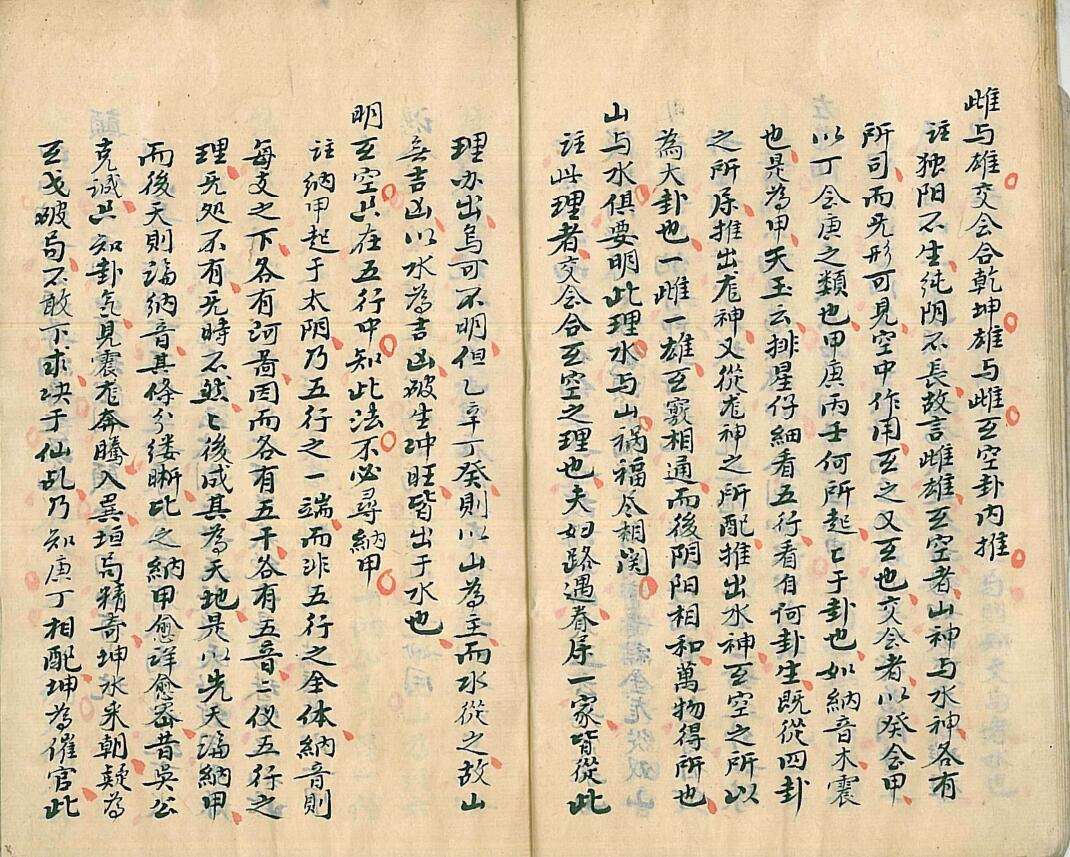 雌与雄交会合乾坤雄与雌互空卦内推
註独阳不生纯阴不長故言雌雄互空者山神与水神各有
所司而无形可見空中作用互之又互也交会者以癸会甲
以丁会庚之類也甲庚丙壬何所起匕于卦也如納音木震
也是為甲天玉云排星仔細看五行看自何卦生既從四卦
之所属推出龙神又從龙神之所配推出水神互空之所以
為大卦也一雌一雄互竅相通而後阴阳相和萬物得所也
山与水俱要明此理水与山祸福尽相関
註此理者交会合互空之理也夫妇路遇眷属一家皆從此
理办出烏可不明但乙辛丁癸則以山為主而水從之故山
無吉凶以水為吉凶破生冲旺皆出于水也
明互空只在五行中知此法不必尋納甲
註納甲起于太阴乃五行之一端而非五行之全体納音則
每支之下各有河啚因而各有五干各有五音二仪五行之
理无处不有无時不然匕後咸其為天地是以先天論納甲
而後天則論納音其條分缕晰比之納甲愈详愈密昔吳公
克诚只知卦氣見震龙奔騰入巽垣局精奇坤水来朝疑為
互戈破局不敢下求决于仙乩乃知庚丁相配坤為催官此